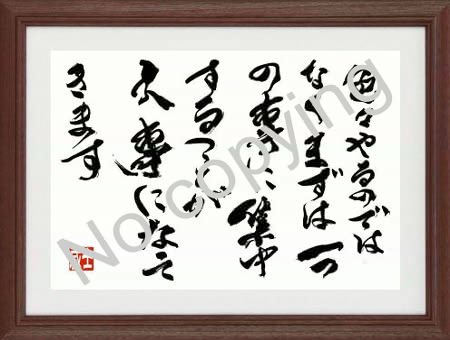 色々やるのでは
なくまずは一つ
の事に集中
することが
大事になって
きます
No copying